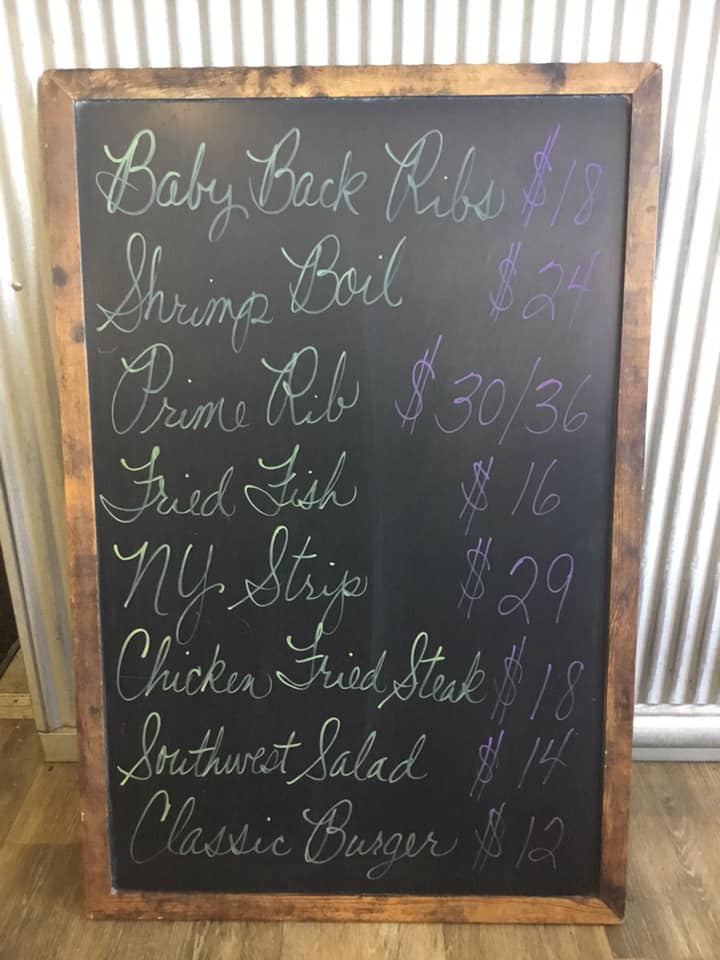 Baby Back Ribs $18
Shrimp Boil $24
Prime Rib $30/36
Fried Fish $16
NY Strip $29
Chicken Fried Steak $18
Southwest Salad $14
Classic Burger $12